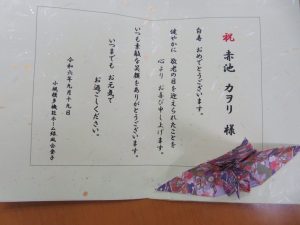 祝 赤池 カヲリ 様
白寿 おめでとうございます。
健やかに 敬老の日を迎えられたことを
心より お喜び申し上げます。
いつも素敵な笑顔をありがとうございます。
いつまでも お元気で
お過ごしください。
令和六年九月十九日
小規模多機能ホーム